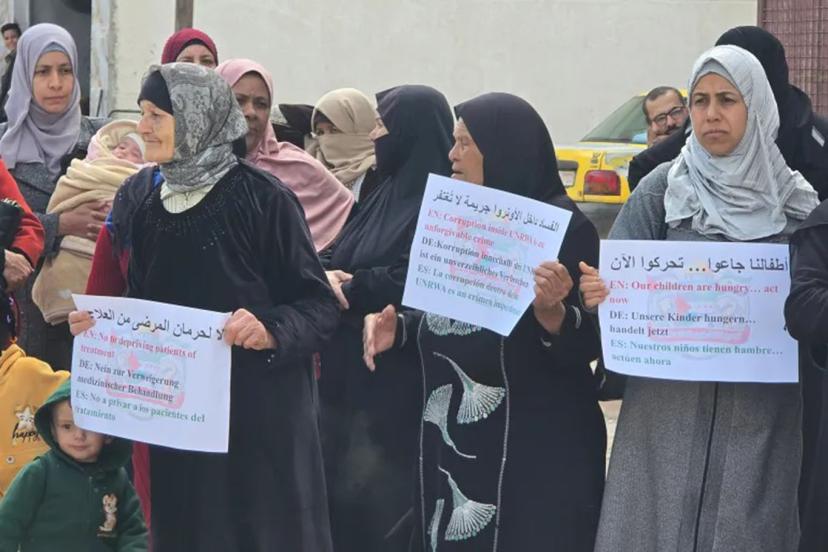 لا لحرمان المرضى من العلاج
EN: No to depriving patients of
treatment
DE: Nein zur Verweigerung
medizinischer Behandlung
ES: No a privar a los pacientes del
tratamiento
الفساد داخل الأونروا جريمة لا تُغتفر
EN: Corruption inside UNRWA is
unforgivable crime
DE: Korruption innerhalb des
ist ein unverzeihliches Verbrechen
ES: La corrupción dentro de la
UNRWA es un crimen
أطفالنا جاعوا... تحركوا الآن
EN: Our children are hungry... act
now
DE: Unsere Kinder hungern...
handelt jetzt
ES: Nuestros niños tienen hambre...
actúen ahora
happy